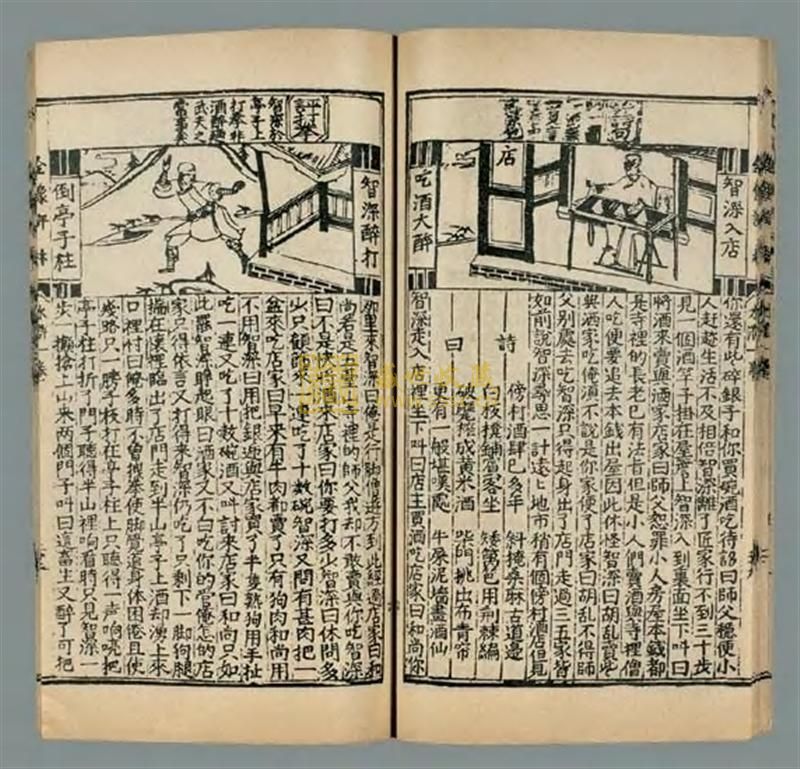 智深入店
店
吃酒大醉
你還有些碎銀子和你買碗酒吃待詔曰師父穩便小
人赶趂生活不及相倍智深離了匠家行不到三十步
見一個酒竿子掛在屋簷上智深入到裏面坐下叫曰
將酒來賣與洒家店家曰師父恕罪小人房屋本錢都
是寺裡的長老已有法旨但是小人們賣酒與寺裡僧
人吃便要追去本錢出屋因此休怪智深曰胡乱賣些
與洒家吃俺湏不說是你家便了店家曰胡乱不得師
父別處去吃智深只得起身出了店門走過三五家皆
如前說智深尋思一計遠上地市稍有個傍村酒店但見
詩
曰
傍村酒肆已多年 斜掩桑麻古道邊
白板櫈鋪賔客坐 矮篱笆用荆棘編
破瓮榨成黄米酒 柴門挑出布青帘
更有一般堪嘆處 牛屎泥墻盡酒仙
智深走入店裡坐下叫曰店主買酒吃店家曰和尚你
評打拳
智深於
亭子上
打拳非
酒醉廼
武夫之
智深醉打
倒亭子柱
那里來智深曰俺是行脚僧遊方到此經過店家曰和
尚若是臺寺裡的師父我却不敢賣與你吃智深
曰不是快將酒來店家曰你要打多少智深曰休問多
少只顧篩來一連吃了十数碗智深又問有甚肉把一
盆來吃店家曰早來有牛肉都賣了只有狗肉和尚用
不用智深曰用把銀逊與店家買了半隻熟狗用手扯
吃一連又吃了十数碗酒又叫討來店家曰和尚只如
此罷智深睁起眼曰洒家又不白吃你的當俺怎的店
家只得依言又打得來智深仍吃了只剩下一脚狗腿
揣在懐裡臨出了店門走到半山亭子上酒却湧上來
口裡村曰俺多時不曾拽拳使脚覺道身体困倦且使
幾路只一膀子扳打在亭子柱上只聽得一声响喨把
亭子柱打折了門子聽得半山裡响看時只見智深一
步一攧搶上山來两個門子叫曰這畜生又醉了可把